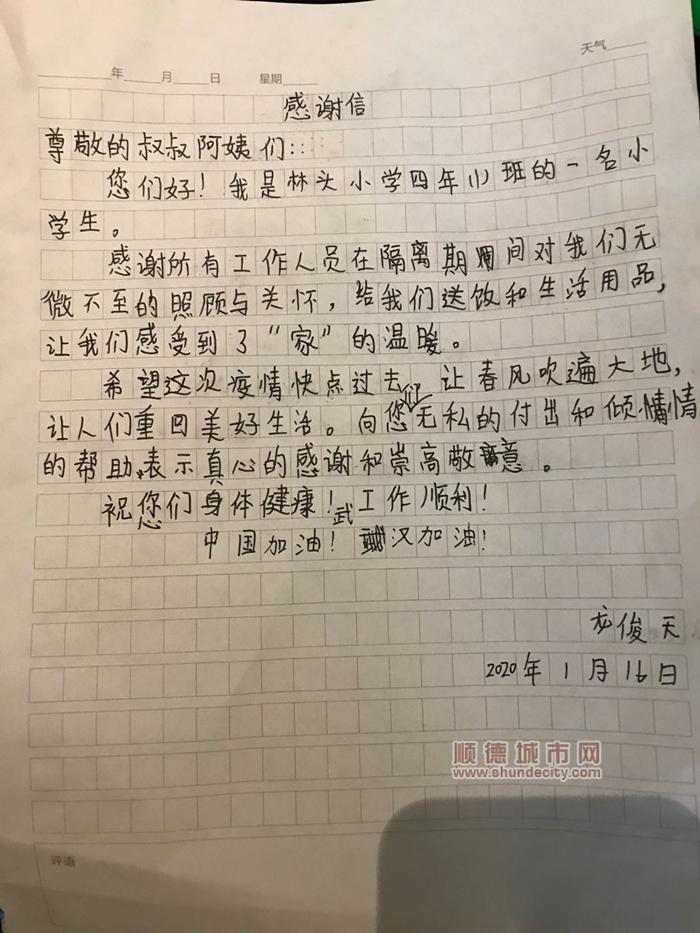 天气
年 月 日 星期
感谢信
尊敬的叔叔阿姨们:::
您们好！我是林头小学四年(1)班的一名小
学生。
感谢所有工作人员在隔离期间对我们无
微不至的照顾与关怀，给我们送饮和生活用品，
让我们感受到了“家”的温暖。
希望这次疫情快点过去，让春风吹遍大地，
让人们重回美好生活。向您们无私的付出和倾情
的帮助，表示真心的感谢和崇高敬意。
祝您们身体健康！工作顺利！
中国加油！武汉加油！
龙俊天
2020年1月16日
顺德城市网
www.shundecity.com
评语